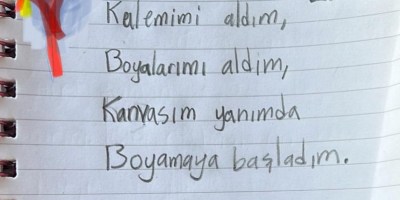 Kalemimi aldım,
Boyalarımı aldım,
Kanvasım yanımda
Boyamaya başladım.